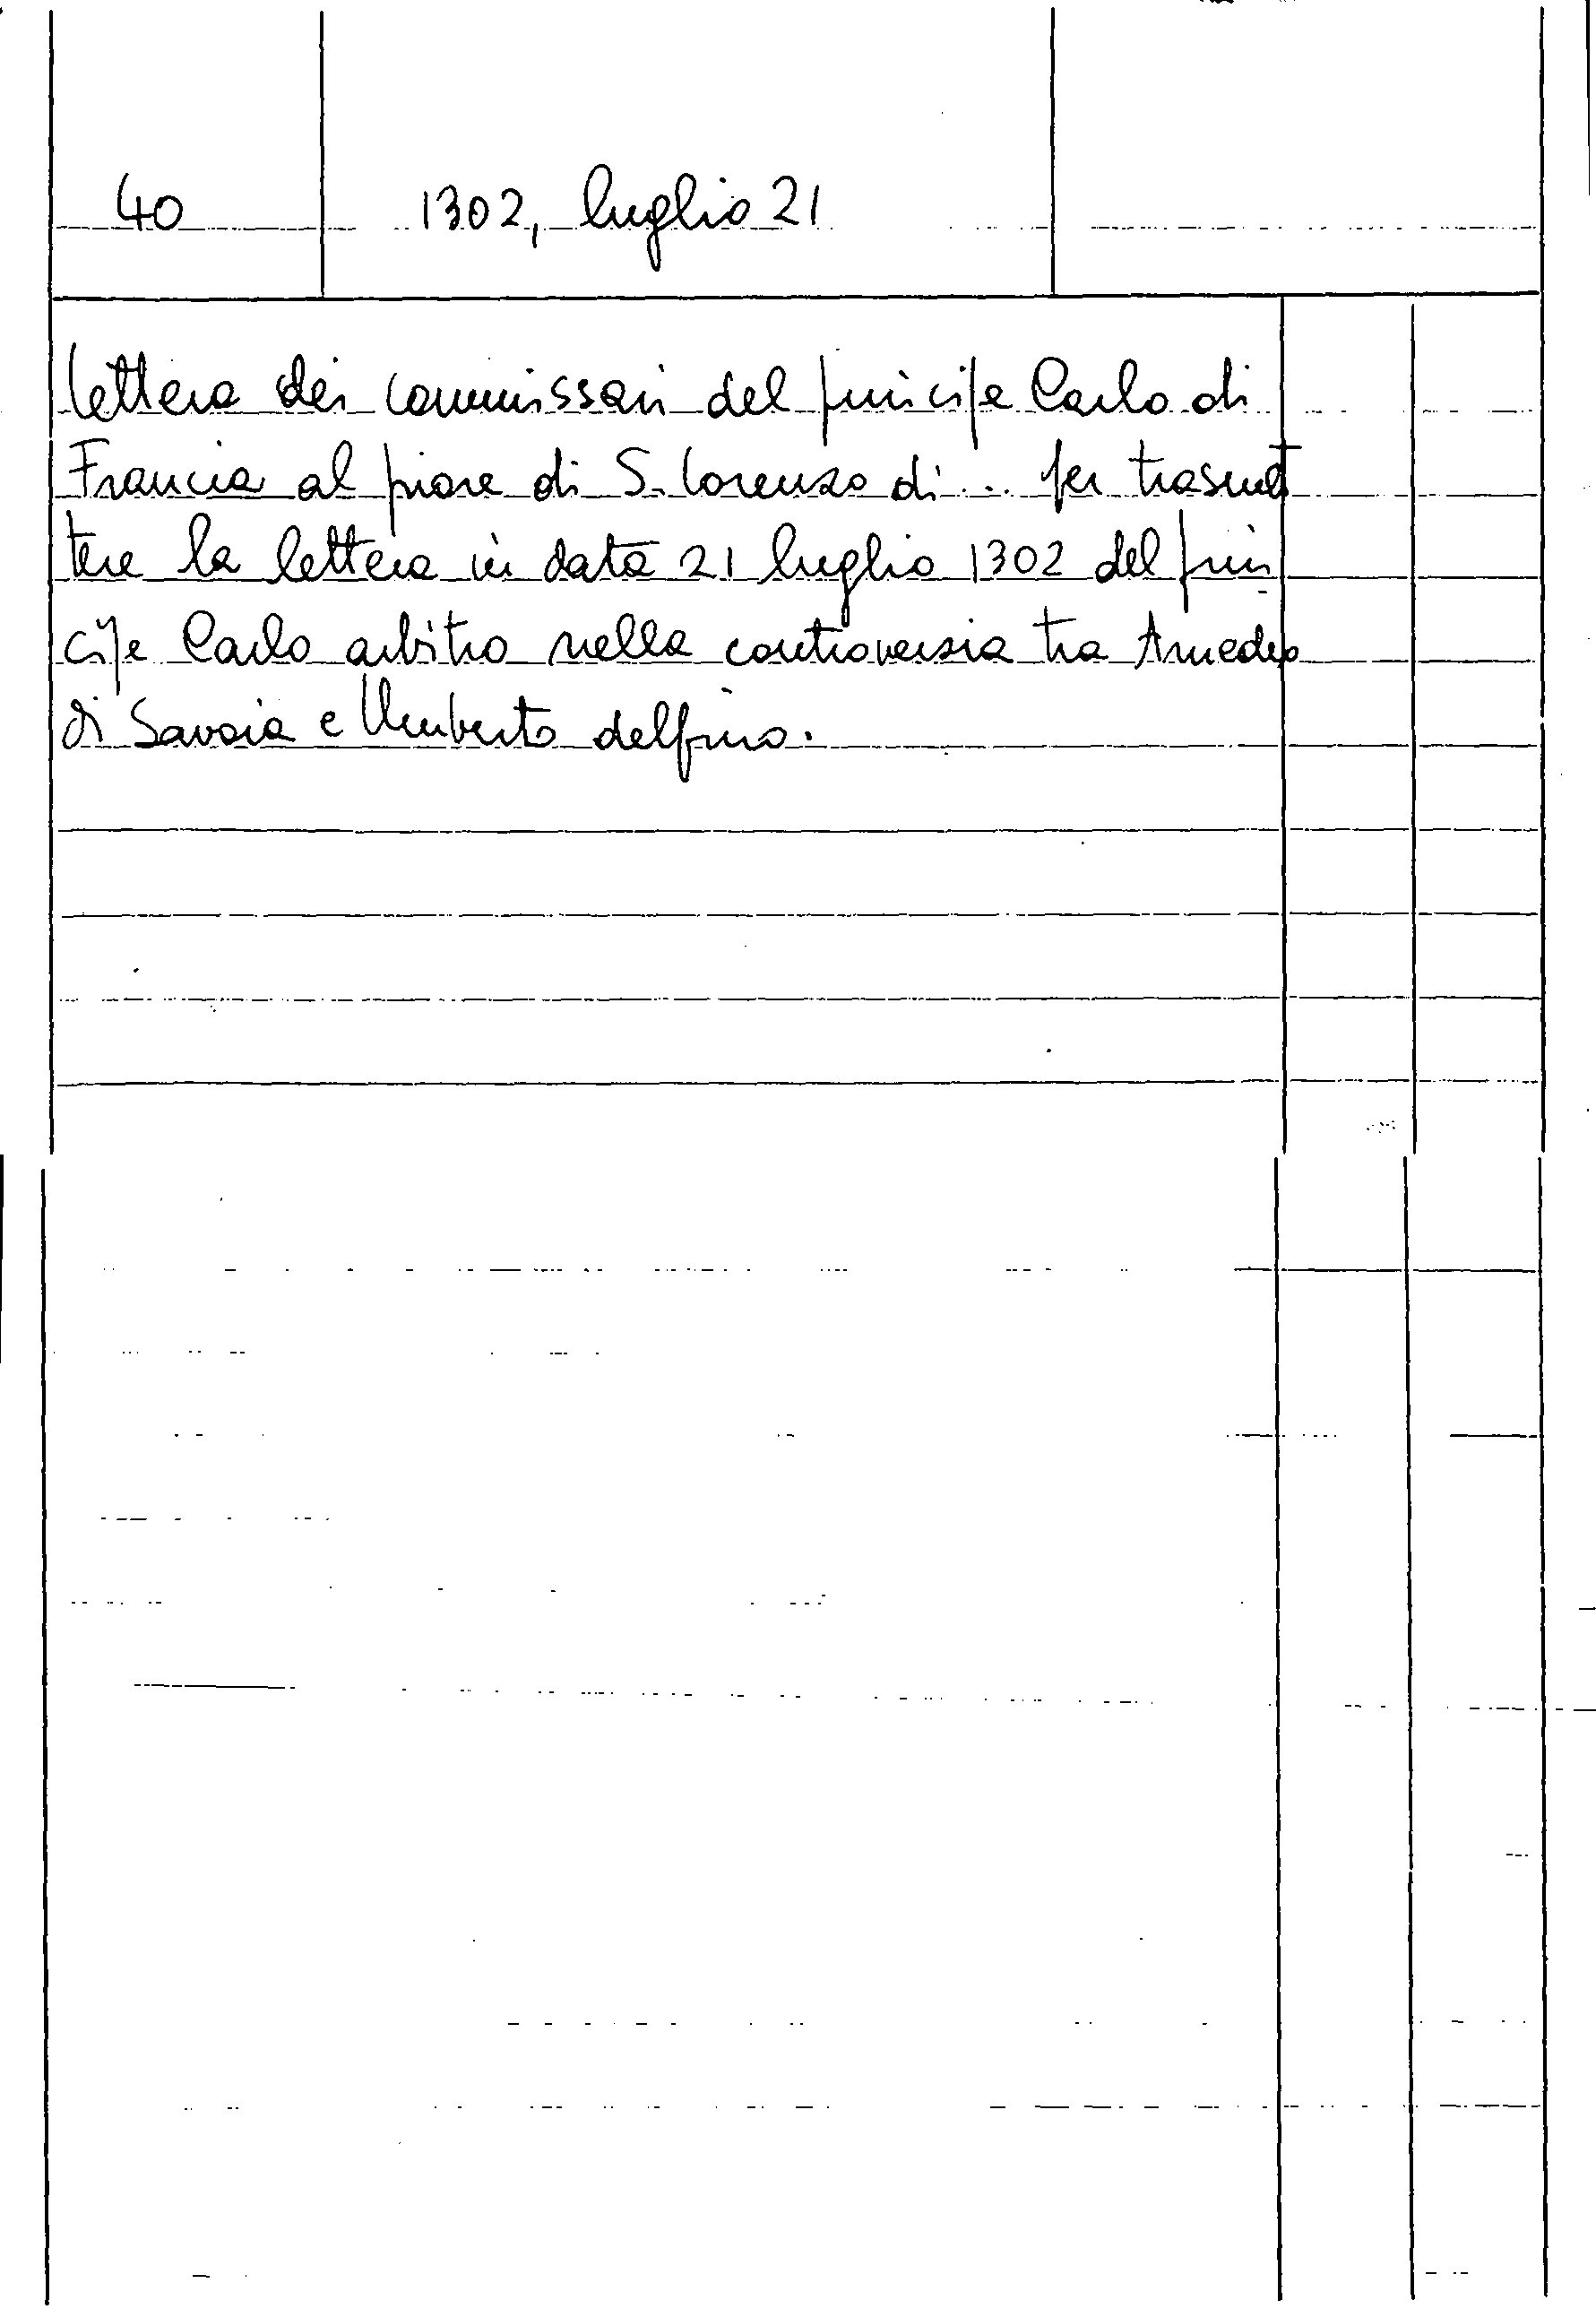 40 1302, luglio 21
lettera dei commissari del principe Carlo di
Francia al priore di S. Lorenzo di... per trasmet
tere la lettera in data 21 luglio 1302 del prin
cipe Carlo arbitro nella controversia tra Amedeo
di Savoia e Umberto delfino.